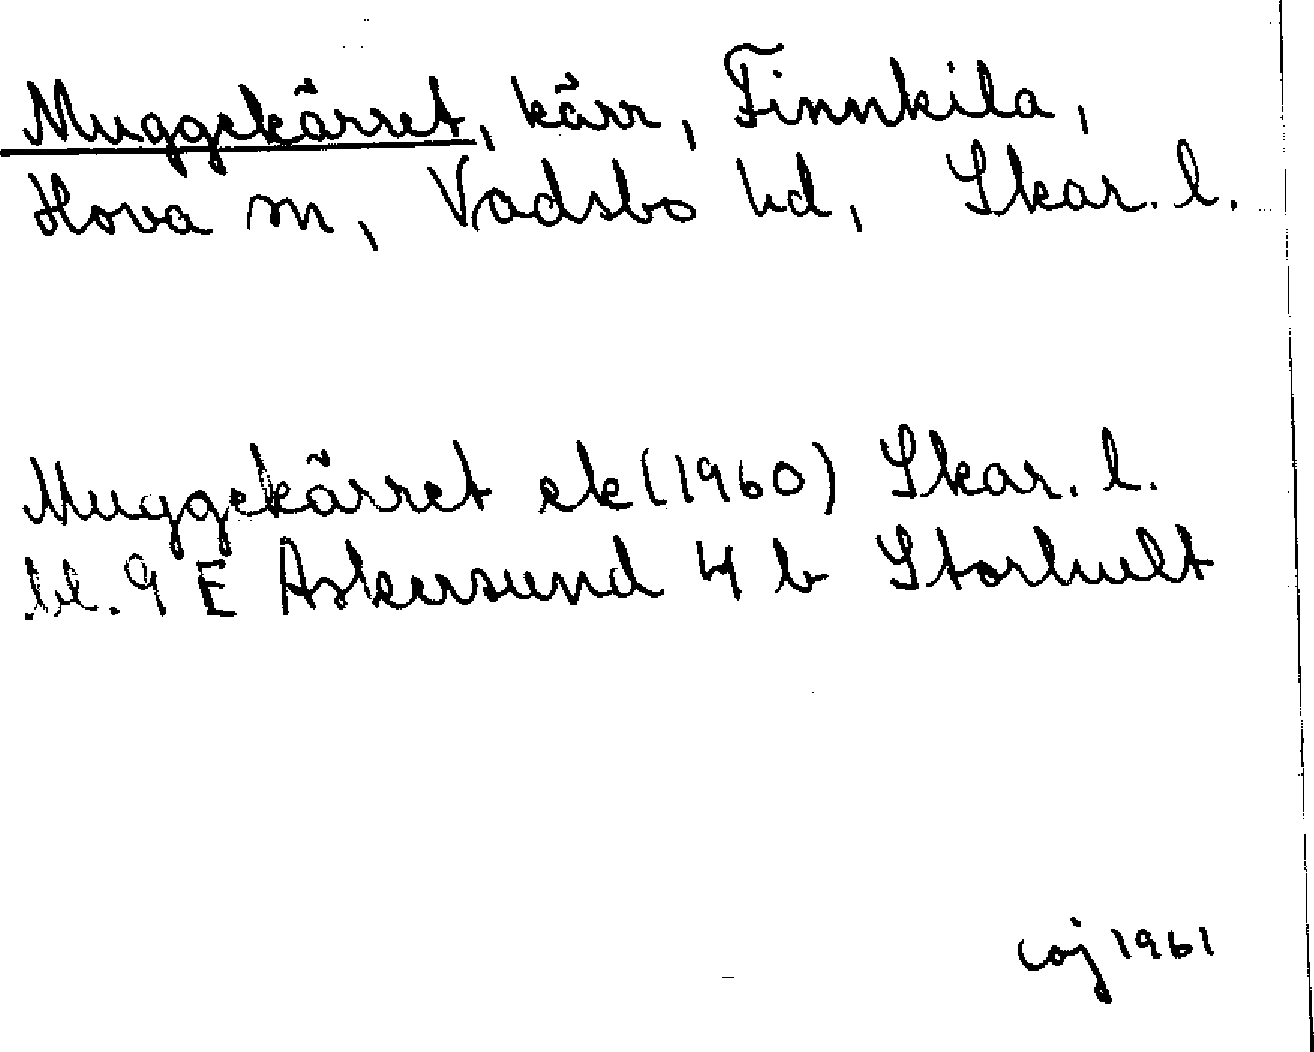 Muggekärret, kärr, Finnkila,
Hova sn, Vadsbo hd, Skar. l.
Muggekärret ek (1960) Skar. l.
bl. 9 E Askersund 4 b Storhult
1961